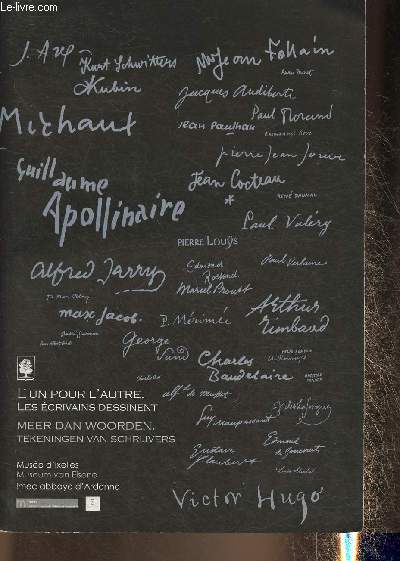 Le-Livre.com
J. Arp
Kurt Schwitters
Kubin
Jean Follain
Jacques Audiberti
Paul Morand
Michaux
Jean Paulhan
Emmanuel Bove
Pierre Jean Jouve
Guill
aume
Apollinaire
Jean Cocteau
*
RENÉ DAUMAL
Paul Valéry
PIERRE LOUŸS
Alfred Jarry
Edmond
Rostand
Paul Verlaine
Marcel Proust
max Jacob.
P. Mérimée
Arthur
Rimbaud
George
Sand
Charles
Baudelaire
alf de musset
L'UN POUR L'AUTRE.
LES ÉCRIVAINS DESSINENT
MEER DAN WOORDEN.
TEKENINGEN VAN SCHRIJVERS
Guy
Maupassant
Gustave
Flaubert
Edmond
de Goncourt
Musée d'Ixelles
Museum van Elsene
Imec abbaye d'Ardenne
Victor Hugo